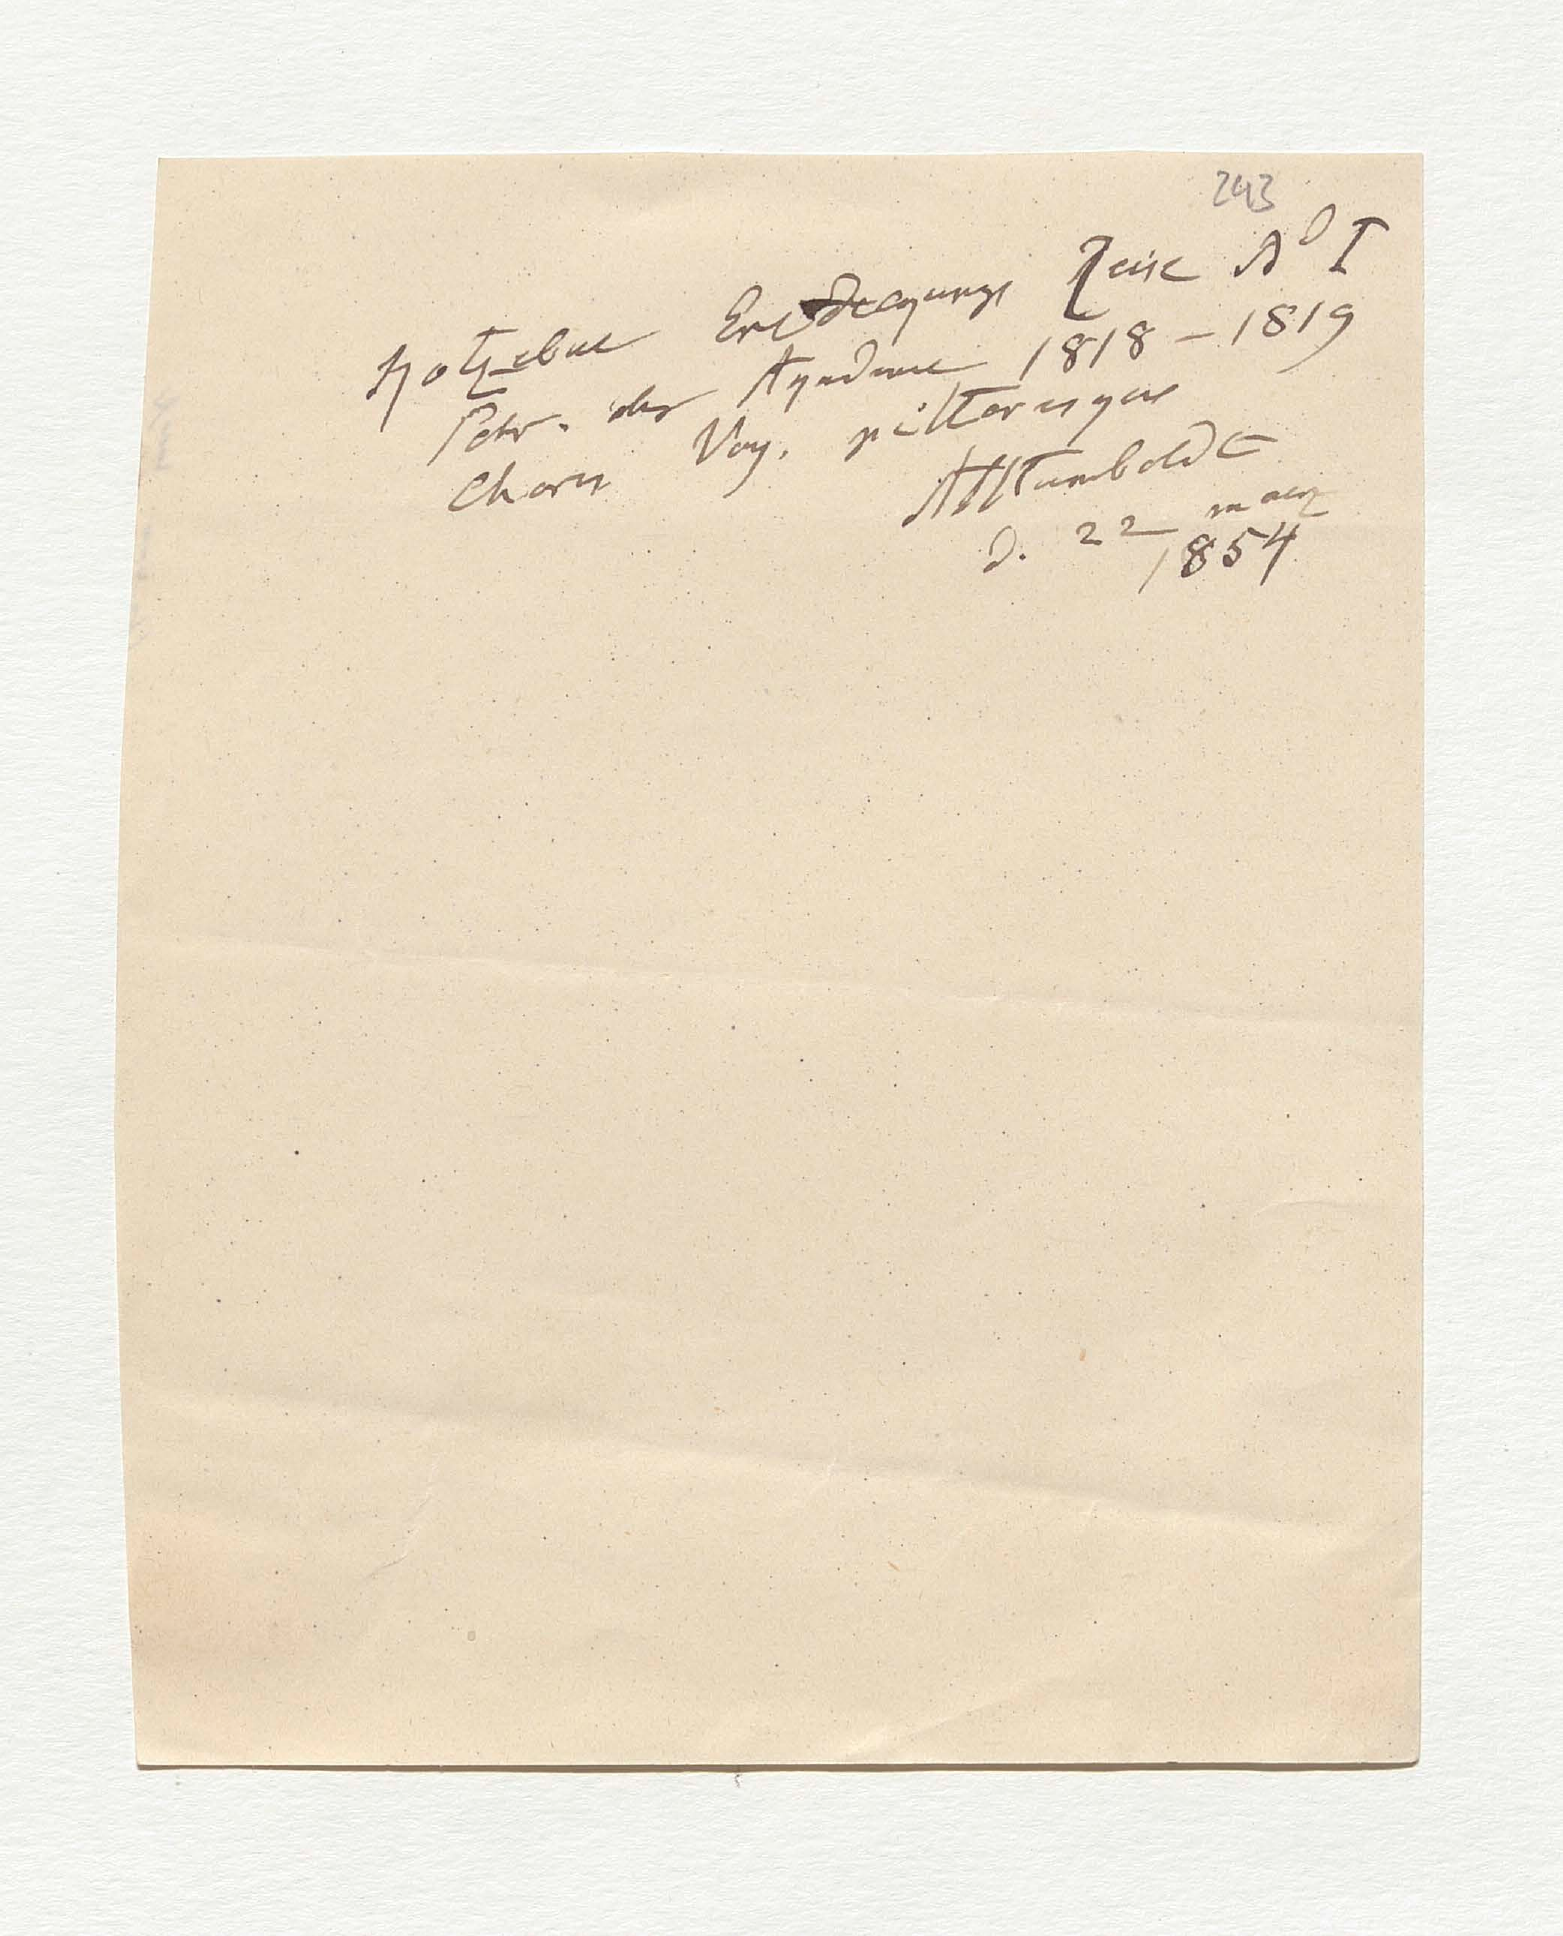 243
Kotzebue Entdeckungs Reise Bd I
Petr. der Academie 1818 – 1819
Choris Voy. pittoresque
AHumboldt
d. 22 März
1854